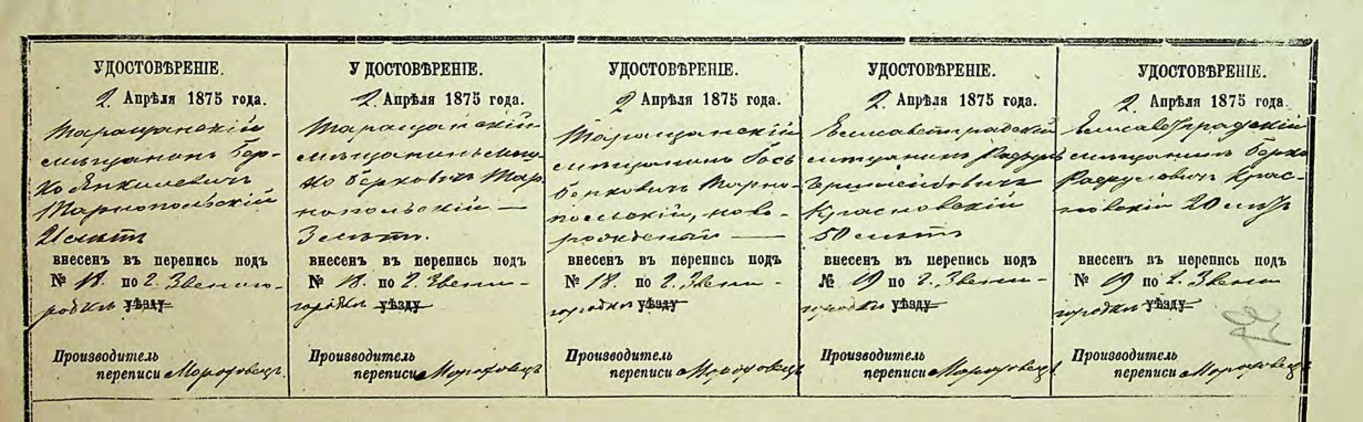 УДОСТОВѢРЕНІЕ.
2 Апрѣля 1875 года.
Таращанскій
мѣщанинъ Бер-
ко Янкилевичъ
Тарнопольскій
21 лѣтъ
внесенъ въ перепись подъ
№ 18. по г. Звениго-
родкѣ уѣзду
Производитель
переписи
У ДОСТОВѢРЕНІЕ.
2. Апрѣля 1875 года.
Таращанскій
мѣщанинъ
Берковичъ Тар-
нопольскій —
3 лѣтъ.
внесенъ въ перепись подъ
№ 18. по г. Звени-
городкѣ уѣзду
Производитель
переписи
УДОСТОВѢРЕНІЕ.
2 Апрѣля 1875 года.
Таращанскій
мѣщанинъ Іось
Берковичъ Тарно-
польскій, ново-
рожденный —
внесенъ въ перепись подъ
№ 18. по г. Звени-
городкѣ уѣзду
Производитель
переписи
УДОСТОВѢРЕНІЕ.
2. Апрѣля 1875 года.
Елисаветградскій
мѣщанинъ
Красновскій
50 лѣтъ
внесенъ въ перепись подъ
№ 19 по г. Звени-
городкѣ уѣзду
Производитель
переписи
УДОСТОВѢРЕНІЕ.
2. Апрѣля 1875 года.
Елисаветградскій
мѣщанинъ Берко
Крас-
новскій 20 лѣтъ
внесенъ въ перепись подъ
№ 19 по г. Звени
городкѣ уѣзду
Производитель
переписи